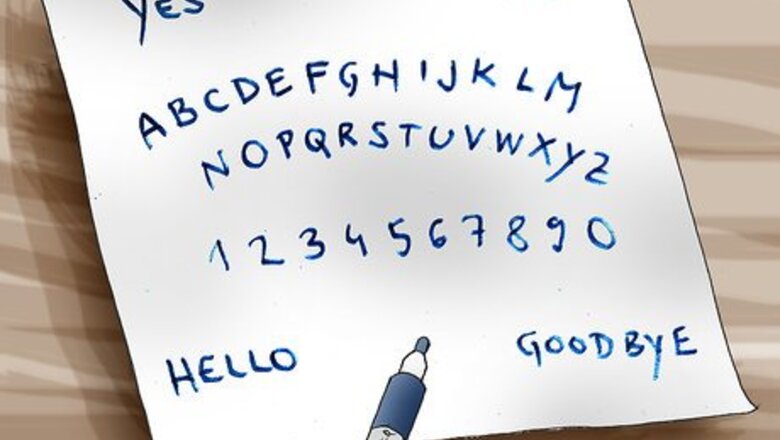 YES
A B C D E F G H I J K L M
N O P Q R S T U V W X Y Z
1 2 3 4 5 6 7 8 9 0
HELLO GOODBYE